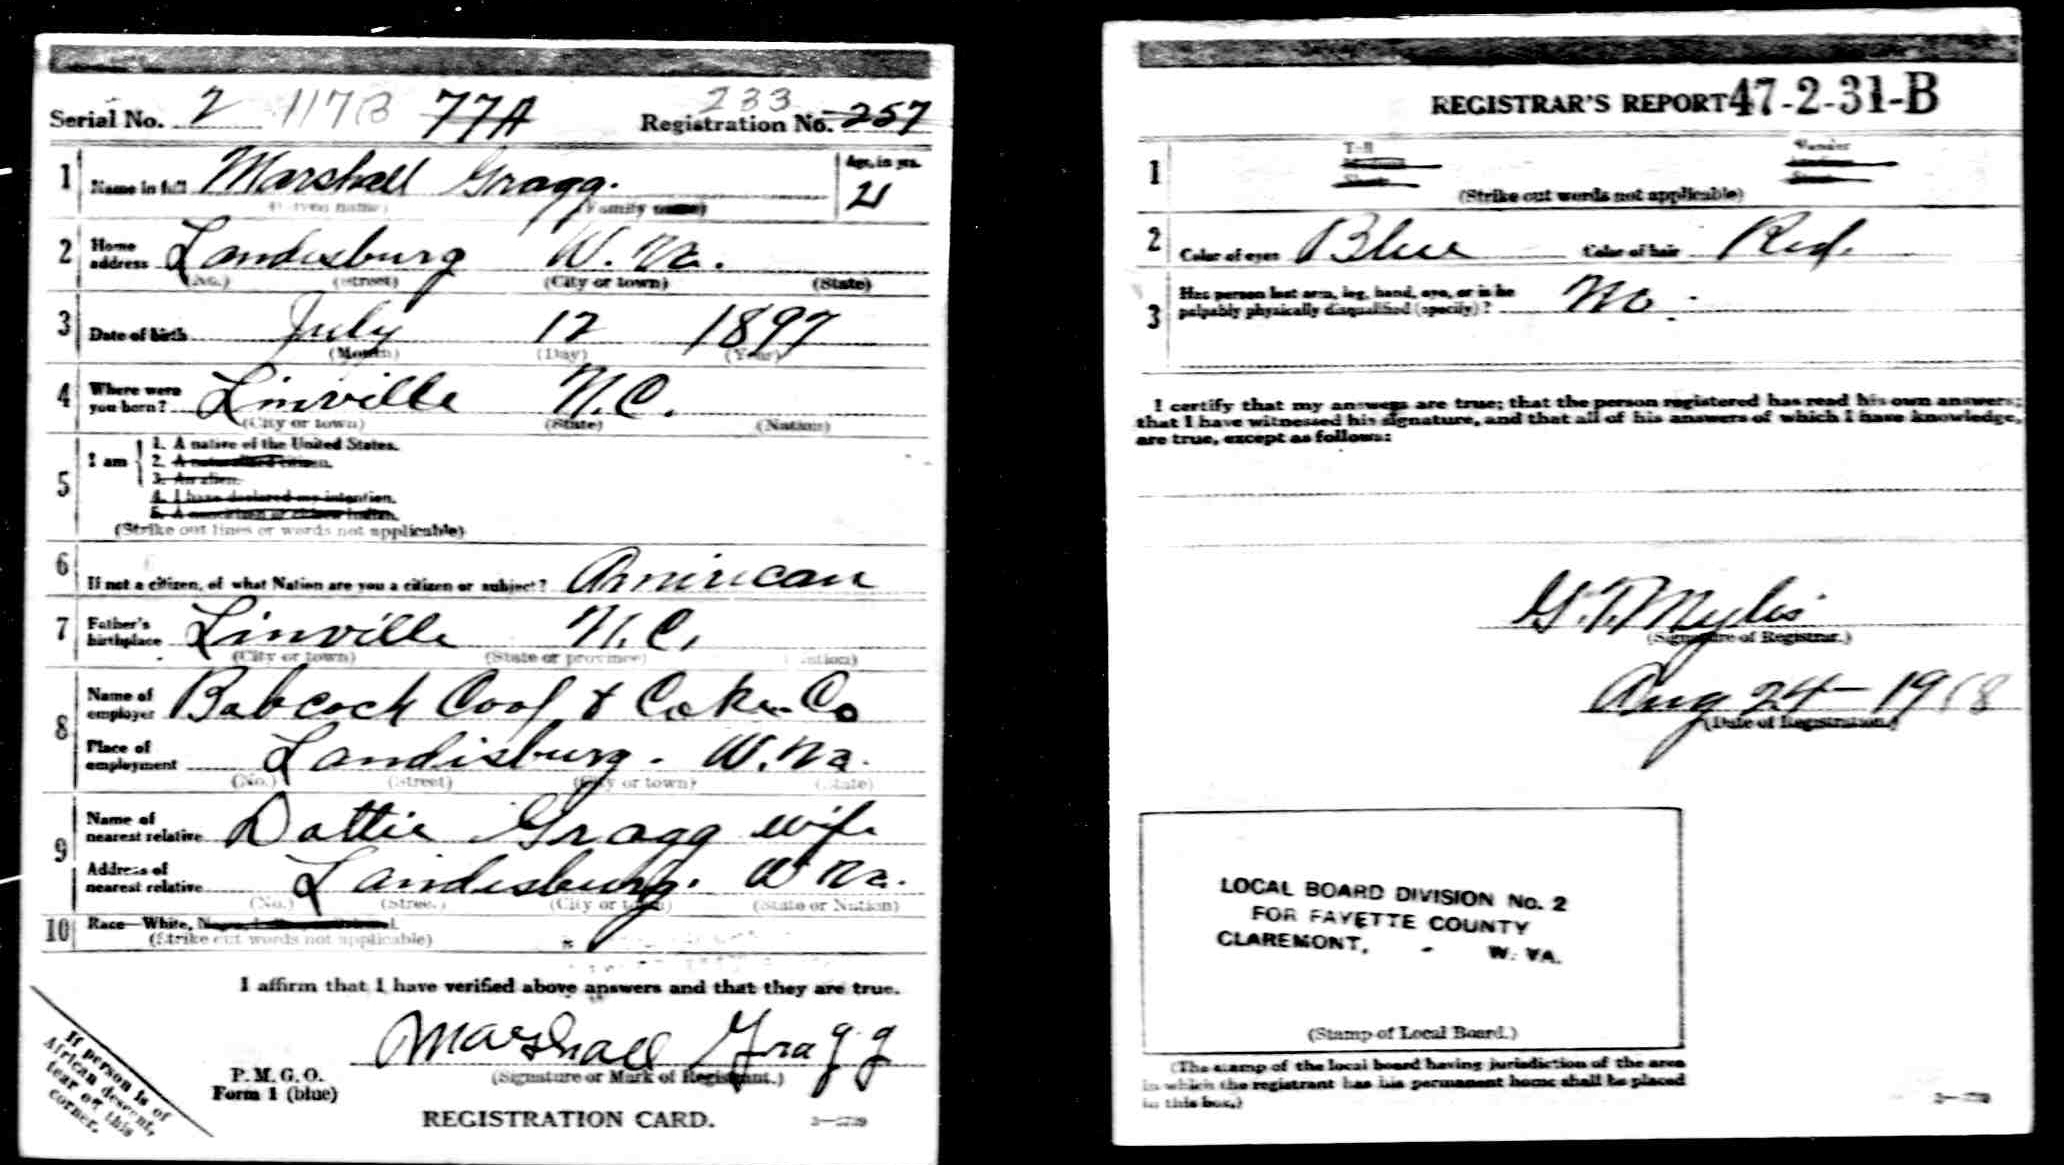 Serial No. 2 117B 77A
233
Registration No. 257
1 Name in full Marshall Gragg. Age, in yrs. 21
(Given name) (Family name)
2 Home address Landesburg W. Va.
(No.) (Street) (City or town) (State)
3 Date of birth July 12 1897
(Month) (Day) (Year)
4 Where were you born? Linville N.C.
(City or town) (State) (Nation)
5 I am
1. A native of the United States.
2. A naturalized citizen.
3. An alien.
4. I have declared my intention.
(Strike out lines or words not applicable)
6 If not a citizen, of what Nation are you a citizen or subject? American
7 Father's birthplace Linville N.C.
(City or town) (State or province) (Nation)
8 Name of employer Babcock Coal & Coke Co
Place of employment Landisburg. W. Va.
(No.) (Street) (City or town) (State)
9 Name of nearest relative Dottie Gragg wife
Address of nearest relative Landisburg. W Va.
(No.) (Street) (City or town) (State or Nation)
10 Race—White,
(Strike out words not applicable)
I affirm that I have verified above answers and that they are true.
Marshall Gragg
(Signature or Mark of Registrant.)
P. M. G. O.
Form 1 (blue)
REGISTRATION CARD.
If person is of
African descent,
tear off this
corner.
REGISTRAR'S REPORT 47-2-31-B
1 Tall Slender
Medium Medium
Short Stout
(Strike out words not applicable)
2 Color of eyes Blue Color of hair Red.
3 Has person lost arm, leg, hand, eye, or is he
palpably physically disqualified (specify)? No.
I certify that my answers are true; that the person registered has read his own answers;
that I have witnessed his signature, and that all of his answers of which I have knowledge,
are true, except as follows:
(Signature of Registrar.)
Aug 24 - 1918
(Date of Registration.)
LOCAL BOARD DIVISION No. 2
FOR FAYETTE COUNTY
CLAREMONT, - W. VA.
(Stamp of Local Board.)
(The stamp of the local board having jurisdiction of the area
in which the registrant has his permanent home shall be placed
in this box.)